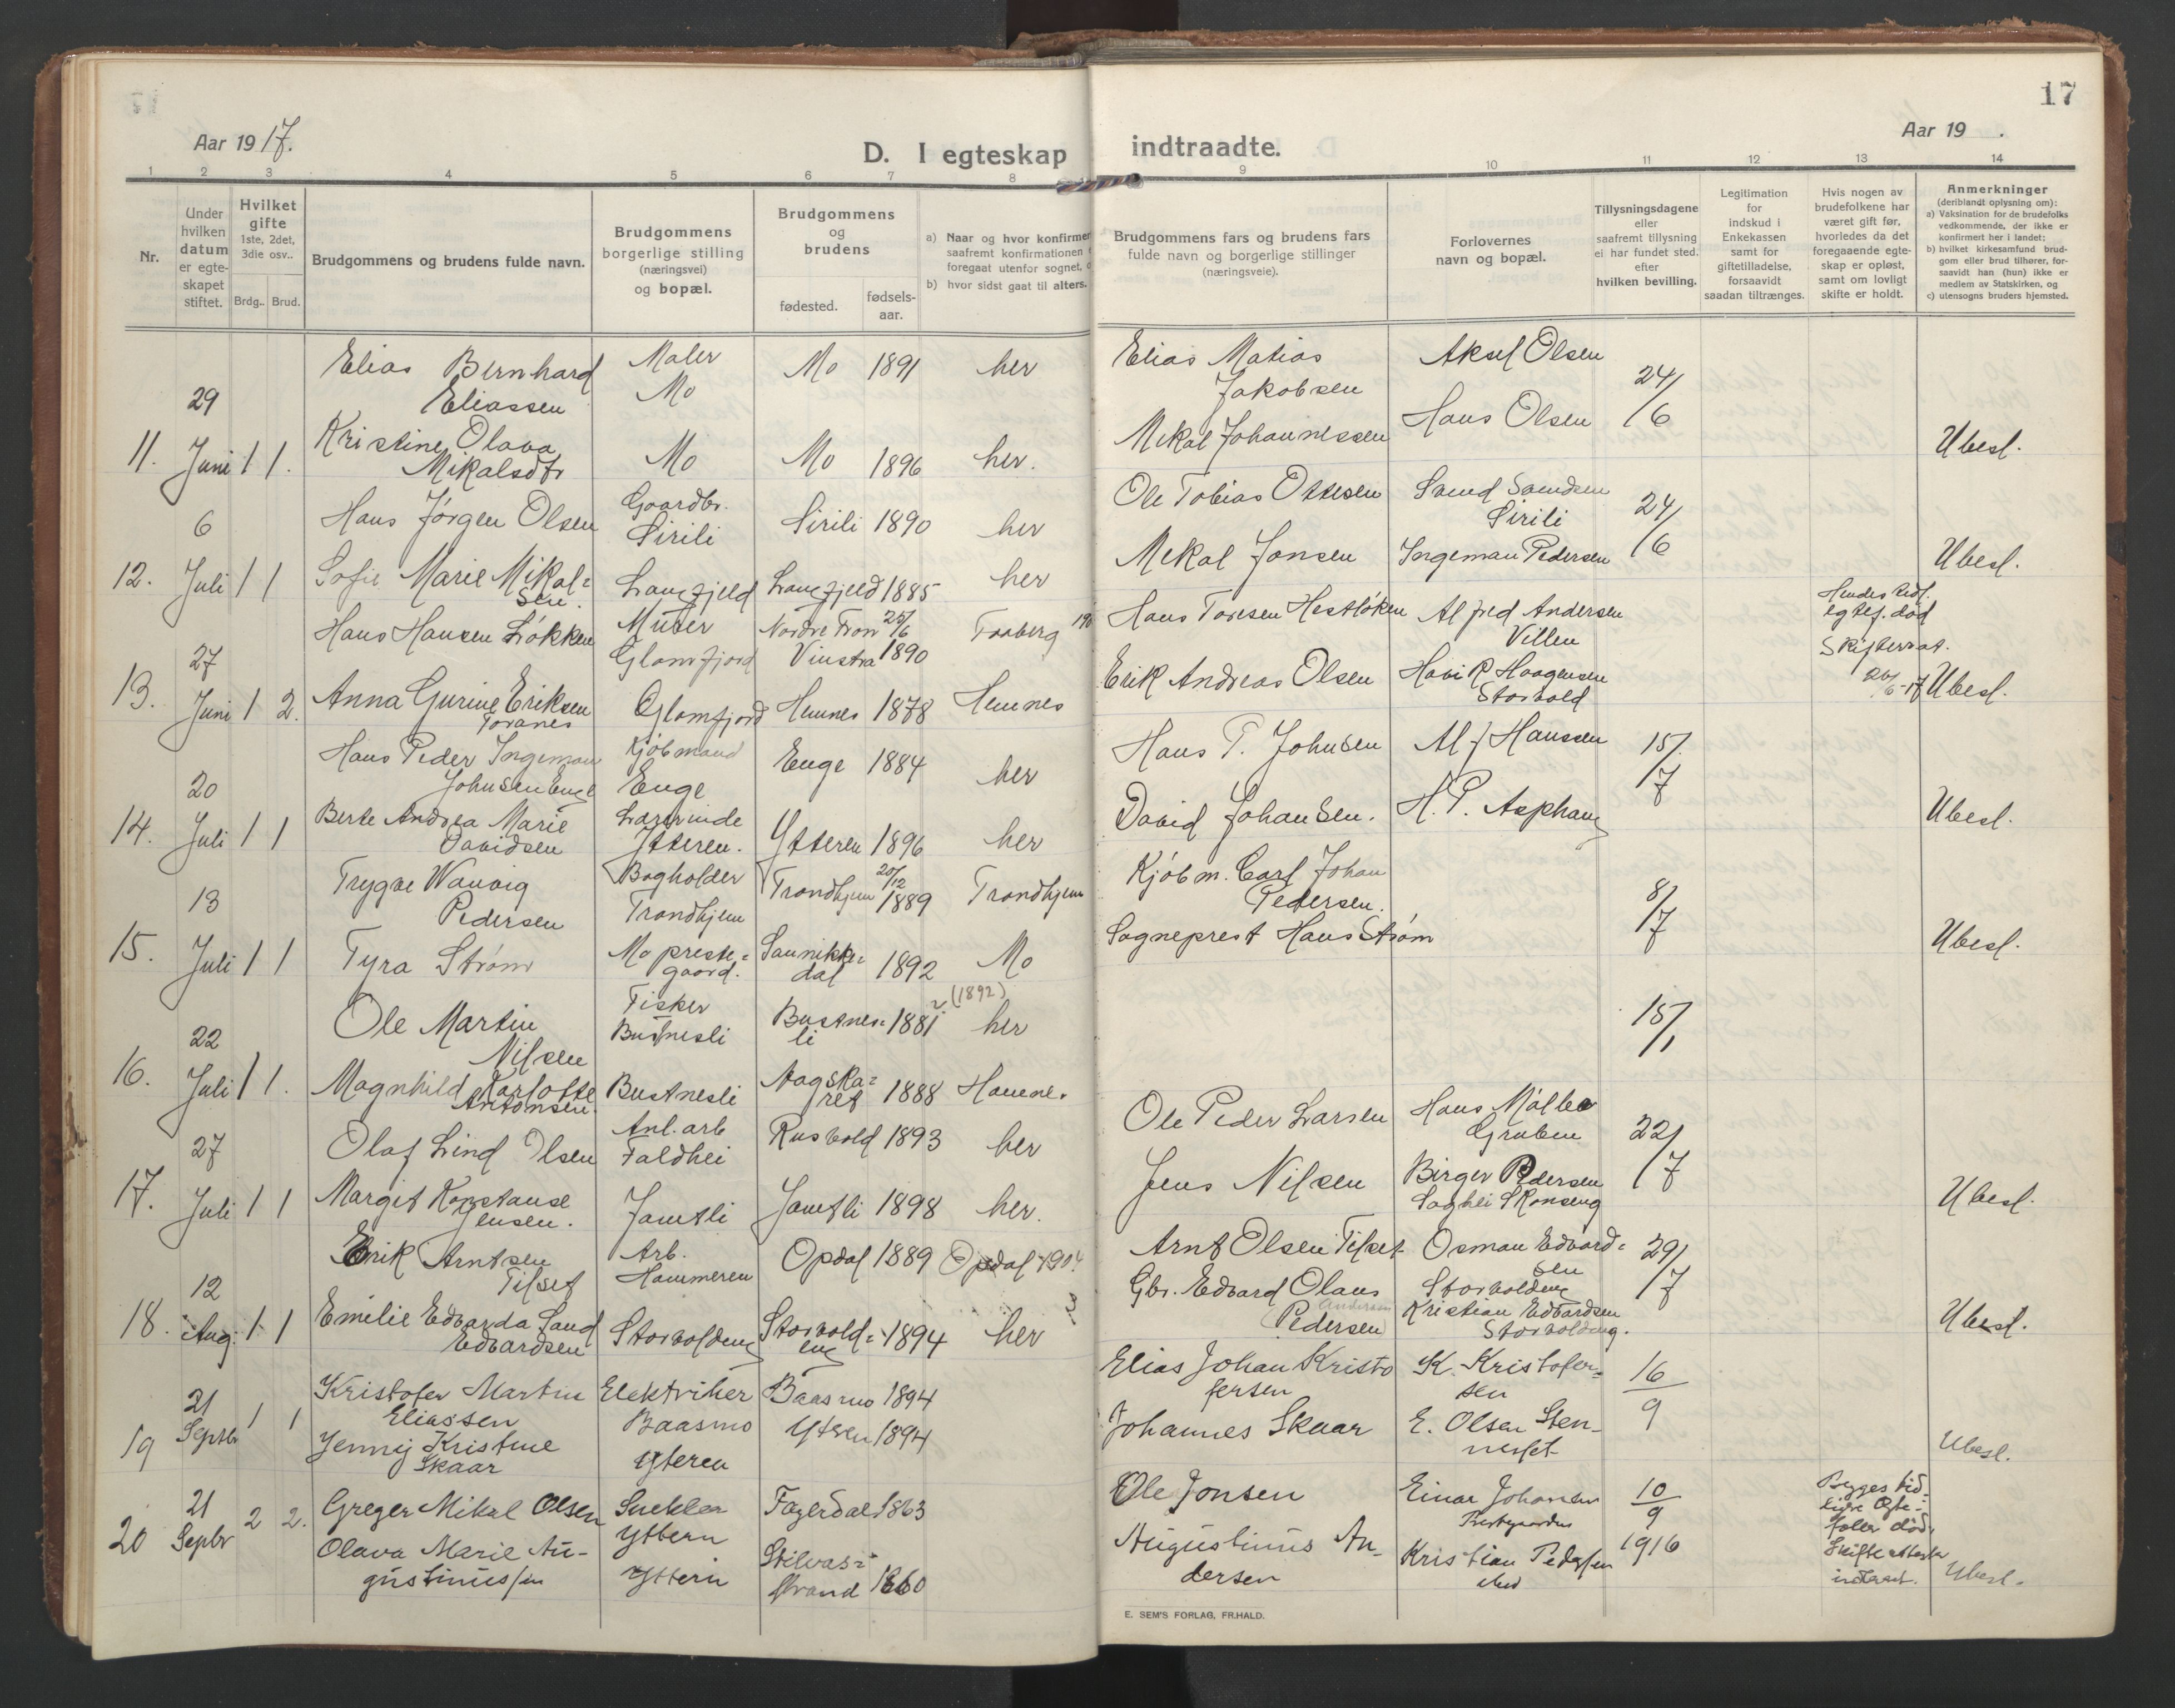 17
Aar 1917.
Aar 19 .
D. I egteskap indtraadte.
1 2 3 4 5 6 7 8 9 10 11 12 13 14
Nr.
Under hvilken datum er egte-skapet stiftet.
Hvilket gifte 1ste, 2det, 3die osv..
Brdg.. Brud.
Brudgommens og brudens fulde navn.
Brudgommens borgerlige stilling (næringsvei) og bopæl.
Brudgommens og brudens
fødested. fødsels-aar.
a) Naar og hvor konfirmer
saafremt konfirmationen
foregaat utenfor sognet,
b) hvor sidst gaat til alters.
Brudgommens fars og brudens fars
fulde navn og borgerlige stillinger
(næringsveie).
Forlovernes
navn og bopæl.
Tillysningsdagene
eller
saafremt tillysning
ei har fundet sted.
efter
hvilken bevilling.
Legitimation
for
indskud i
Enkekassen
samt for
giftetilladelse,
forsaavidt
saadan tiltrænges.
Hvis nogen av
brudefolkene har
været gift før,
hvorledes da det
foregaaende egte-
skap er opløst,
samt om lovligt
skifte er holdt.
Anmerkninger
(deriblandt oplysning om):
a) Vaksination for de brudefolks
vedkommende, der ikke er
konfirmert her i landet;
b) hvilket kirkesamfund brud-
gom eller brud tilhører, for-
saavidt han (hun) ikke er
medlem av Statskirken, og
c) utensogns bruders hjemsted.
11. 29 Juni 1 1.
Elias Bernhard Eliassen Maler Mo Mo 1891 her Elias Matias Jakobsen Aksel Olsen 24/6
Kristine Olava Mikalsdtr Mo Mo 1896 her. Mekal Johannessen Hans Olsen Ubesl.
12. 6 Juli 1 1
Hans Jörgen Olsen Gaardbr. Sirili Sirili 1890 her Ole Tobias Ottesen Svend Svendsen Sirili 24/6
Sofie Marie Mikal=sen. Langfjeld Langfjeld 1885 her Mekal Jonsen Ingeman Pedersen Ubesl.
13. 27 Juni 1 2.
Hans Hansen Løkken Murer Glomfjord Nordre Fron Vinstra 25/6 1890 Faaberg 190 Hans Toresen Hestløken Alfred Andersen Villen Hendes tidl. egtef. död Skifteratt.
Anna Gurine Eriksen Toranes Glomfjord Hemnes 1878 Hemnes Erik Andreas Olsen Haagensen Storvold Ubesl.
14. 20 Juli 1 1
Hans Peder Ingeman Johnsen Enge Kjöbmand Enge Enge 1884 her Hans P. Johnsen Alf Hanssen 15/7
Berte Andrea Marie Davidsen Ytteren. Ytteren 1896 her David Johansen. H. P. Asphaug Ubesl.
15. 13 Juli 1 1
Trygve Wanvig Pedersen Bogholder Trondhjem Trondhjem 20/12 1889 Trondhjem Kjöbm. Carl Johan Pedersen. 8/7
Tyra Ström Mo preste=gaard. Sannikke=dal 1892 Mo Sogneprest Hans Ström Ubesl.
16. 22 Juli 1 1.
Ole Martin Nilsen Fisker Bustnesli Bustnes=li 1881 (1892) her 15/1
Magnhild Karlotte Antonsen. Bustnesli 1888
17. 27 Juli 1 1
Olaf Lind Olsen Anl. arb Faldhei Rusvold 1893 her Ole Peder Larsen Hans Gruben 22/7
Margit Konstanse Jensen. Jamtli Jamtli 1898 her. Jens Nilsen Birger Pedersen Ubesl.
18. 12 Aug. 1 1
Erik Arntsen Tilset Arb. Hammeren Opdal 1889 Opdal 1904 Arnt Olsen Tilset Osman Edvard=sen Storvoldeng 29/7
Emilie Edvarda Edvardsen Storvoldeng Storvold=eng 1894 her Gbr. Edvard Olaus Andersen Pedersen Kristian Edvardsen Storvoldeng. Ubesl.
19 21 Septbr 1 1
Kristofer Martin Eliassen Elektriker Baasmo Baasmo 1894 Elias Johan Kristofersen K. Kristofer-sen 16/9
Jenny Kristine Skaar Ytteren Ytteren 1894 Johannes Skaar E. Olsen Sten-neset Ubesl.
20 21 Septbr 2 2.
Greger Mikal Olsen Snekker Yttern Fagerdal 1863 Ole Jonsen Einar Johansen 10/9 1916 Begges tid-
Olava Marie Au-gustinussen Yttern Stilvas=strand 1860 Augustinus An-dersen Kristian Pedersen Skifteattester Ubesl.
E. SEM'S FORLAG, FR.HALD.